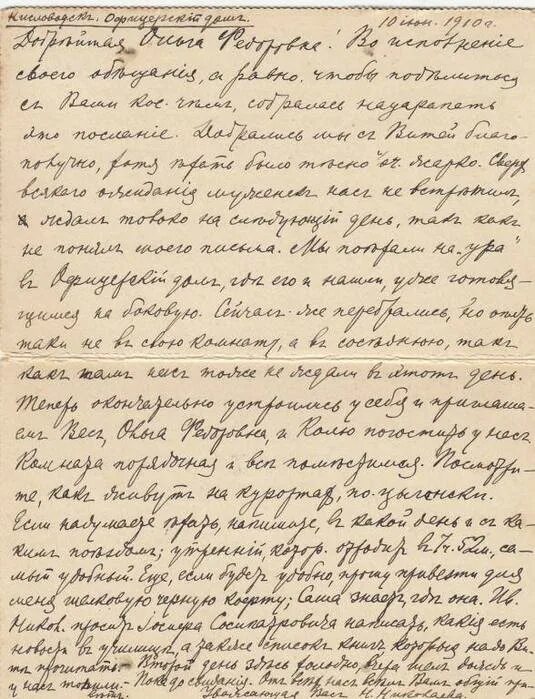 Кисловодскъ. Офицерскій домъ.
10 іюн. 1910 г.
Добрѣйшая Ольга Федоровна! Во исполненіе
своего обѣщанія, а равно чтобы подѣлиться
съ Вами кое-чѣмъ, собралась нацарапать
это посланіе. Добрались мы съ Витей благо-
получно, хотя ѣхать было тѣсно и оч. жарко. Сверхъ
всякаго ожиданія муженекъ насъ не встрѣтилъ,
а ждалъ только на слѣдующій день, такъ какъ
не понялъ моего письма. Мы поѣхали на „ура"
въ Офицерскій домъ, гдѣ его и нашли, уже готовя-
щимся на боковую. Сейчасъ же перебрались, но опять
таки не въ свою комнату, а въ сосѣднюю, такъ
какъ тамъ насъ тоже не ждали въ этотъ день.
Теперь окончательно устроились у себя и приглаша-
емъ Васъ, Ольга Федоровна, и Колю погостить у насъ
Комната порядочная и всѣ помѣстимся. Посмотри-
те, какъ живутъ на курортахъ, по-цыгански.
Если надумаете ѣхать, напишите, въ какой день и съ ка-
кимъ поѣздомъ; утренній, котор. отходитъ въ 7 ч. 52 м., са-
мый удобный. Еще, если будетъ удобно, прошу привезти для
меня шелковую черную кофту; Саша знаетъ гдѣ она. Ив.
Никол. проситъ Сосипатровича написать, какія есть
новости въ училищѣ, а также списокъ книгъ, которыя надо Ви-
тѣ прочитать. Второй день здѣсь холодно, вчера шелъ дождь и
у насъ топили. Пока до свиданія. Отъ всѣхъ насъ всѣмъ Вамъ общій при-
вѣтъ. Уважающая Васъ Н. Николаева